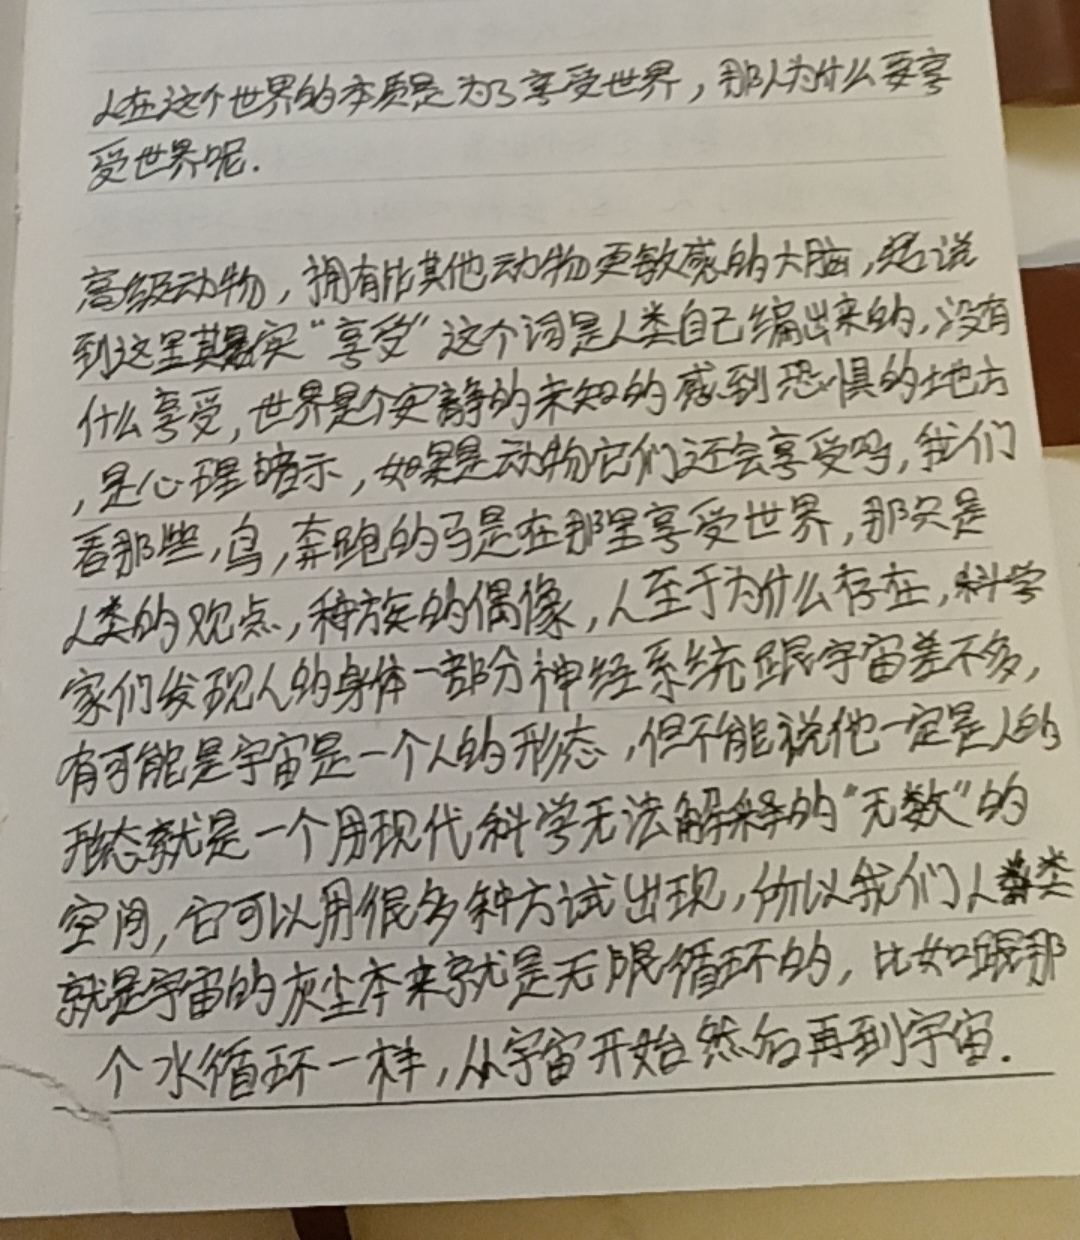 人在这个世界的本质是为了享受世界，那人为什么要享
受世界呢.
高级动物，拥有比其他动物更敏感的大脑，想说
到这里其实“享受”这个词是人类自己编出来的，没有
什么享受，世界是个安静的未知的感到恐惧的地方
，是心理暗示，如果是动物它们还会享受吗，我们
看那些，鸟，奔跑的马是在那里享受世界，那只是
人类的观点，种族的偶像，人至于为什么存在，科学
家们发现人的身体一部分神经系统跟宇宙差不多，
有可能是宇宙是一个人的形态，但不能说他一定是人的
形态就是一个用现代科学无法解释的“无数”的
空间，它可以用很多种方试出现，所以我们人类
就是宇宙的灰尘本来就是无限循环的，比如跟那
个水循环一样，从宇宙开始然后再到宇宙.